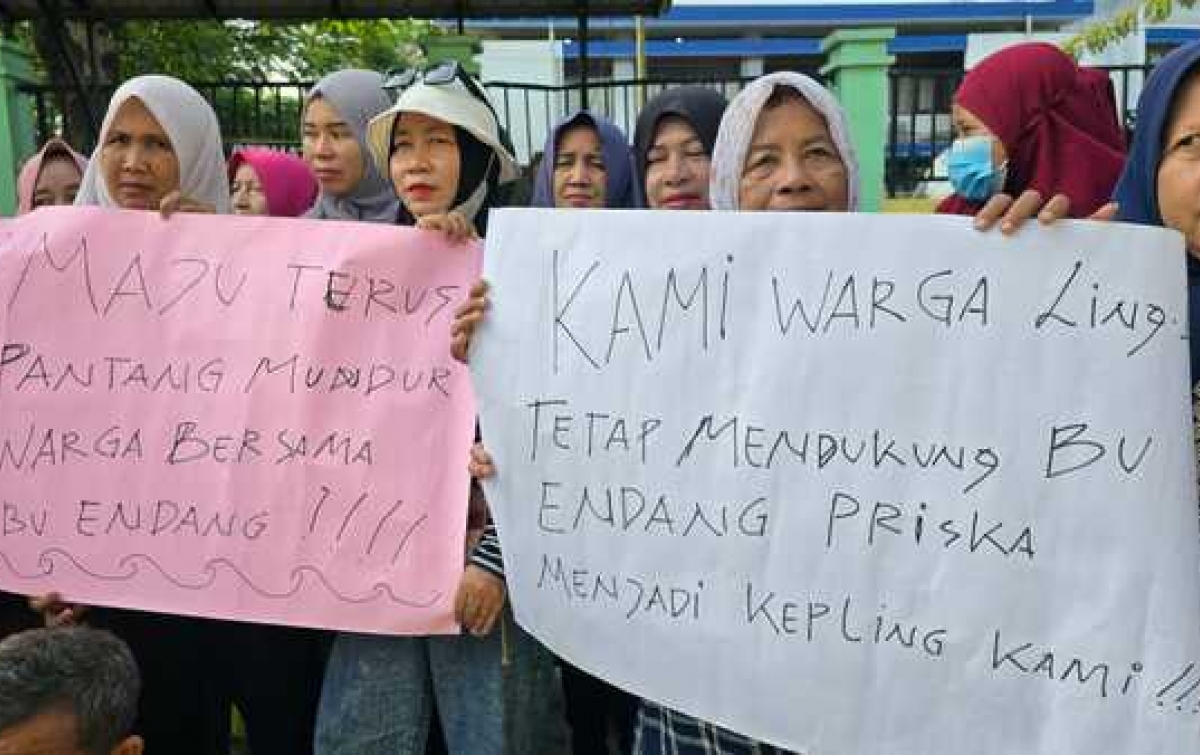 MAJU TERUS
PANTANG MUNDUR
WARGA BERSAMA
BU ENDANG !!!!
KAMi WARGA Ling.
TETAP MENDUKUNG BU
ENDANG PRiSKA
MENJADi KEPLiNG KAMi !!!